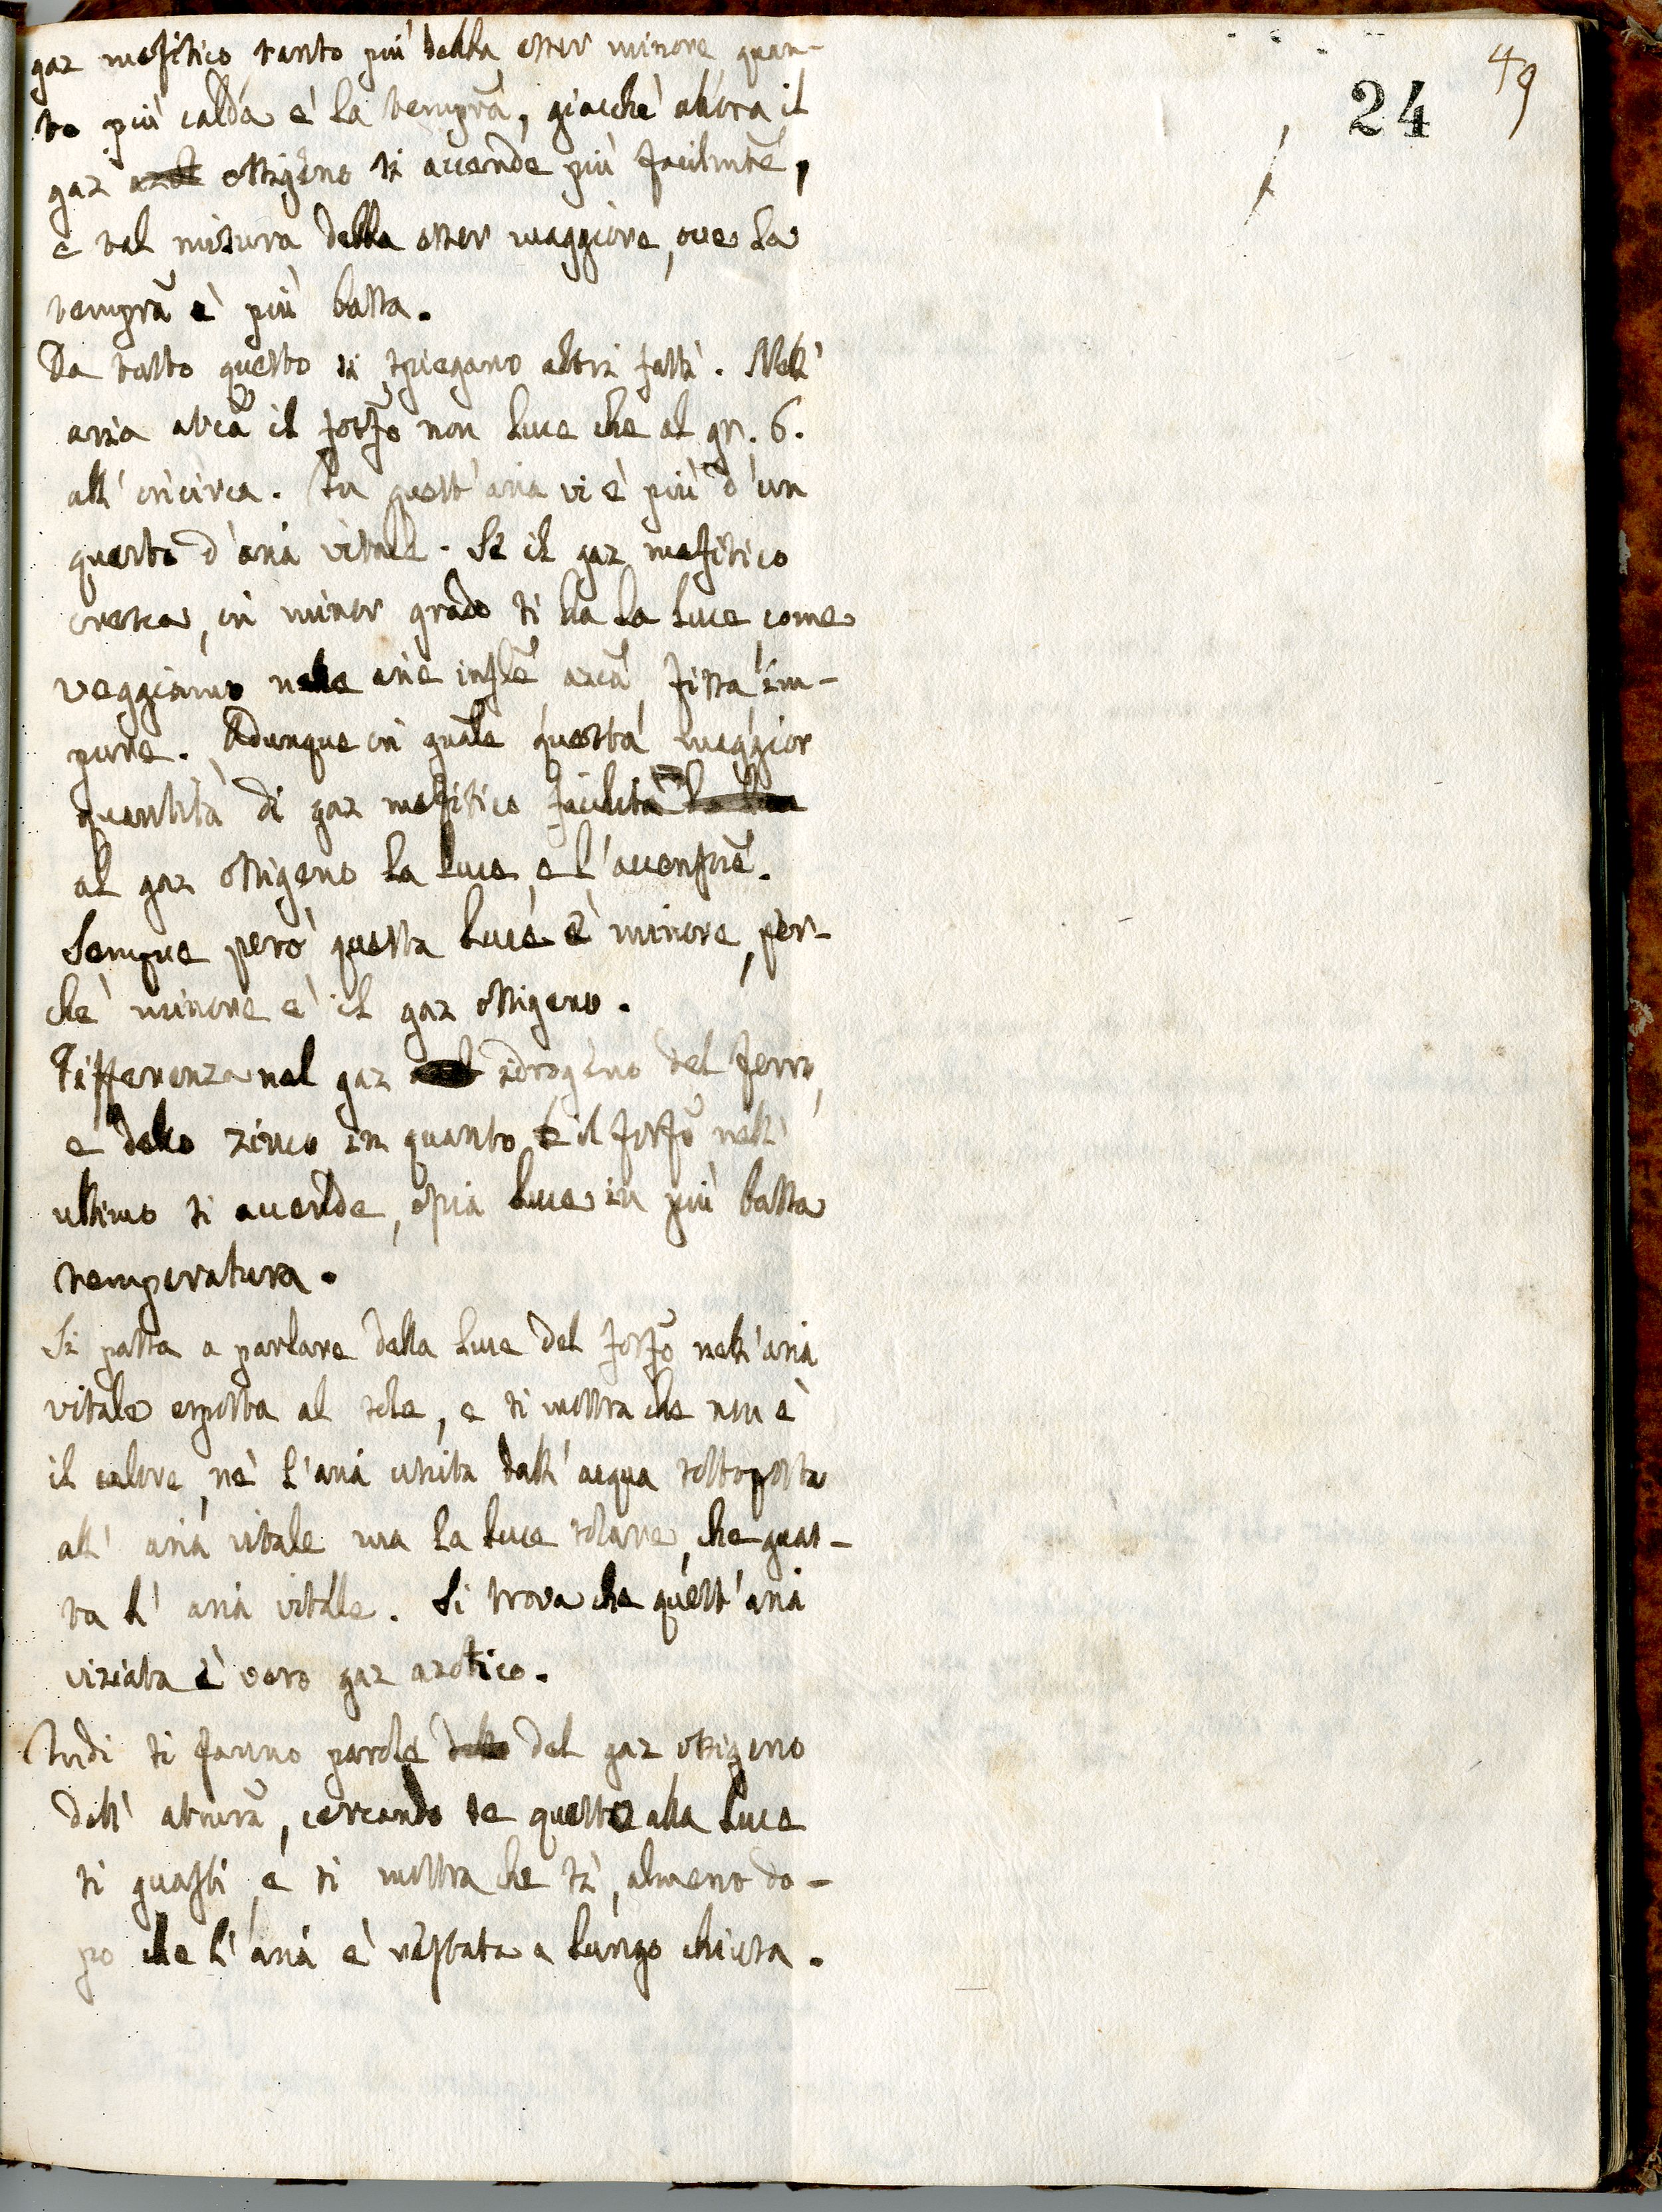 49
24
gaz mefitico tanto più debba esser minore quan-
to più calda è la tempra, giacchè allora il
gaz azot ossigeno si accende più facilmte,
e tal misura debba esser maggiore, ove la
tempra è più bassa.
Da tutto questo si spiegano altri fatti. Nell'
aria atca il fosfo non luce che al gr. 6.
all'incirca. In quest'aria vi è più d'un
quarto d'aria vitale. Se il gaz mefitico
cresca, in minor grado si ha la luce come
veggiamo nelle arie infle arca fissa im-
pure. Adunque in guale questa maggior
quantità di gaz mefitico facilita la luce
al gaz ossigeno la luce, e l'accensione.
Sempre però questa luce è minore, per-
chè minore è il gaz ossigeno.
Differenza nel gaz idrogeno del ferro,
e dello zinco in quanto che il fosfo nell'
ultimo si accende, ossia luce in più bassa
temperatura.
Si passa a parlare della luce del fosfo nell'aria
vitale esposta al sole, e si mostra che non è
il calore, nè l'aria unita dall'acqua sottoposta
all'aria vitale ma la luce solare, che guas-
ta l'aria vitale. Si trova che quest'aria
viziata è vero gaz azotico.
Indi si fanno parole dello del gaz ossigeno
dell'atmra, cercando se questo alla luce
si guasti, e si mostra che sì, almeno do-
po che l'aria è restata a lungo chiusa.